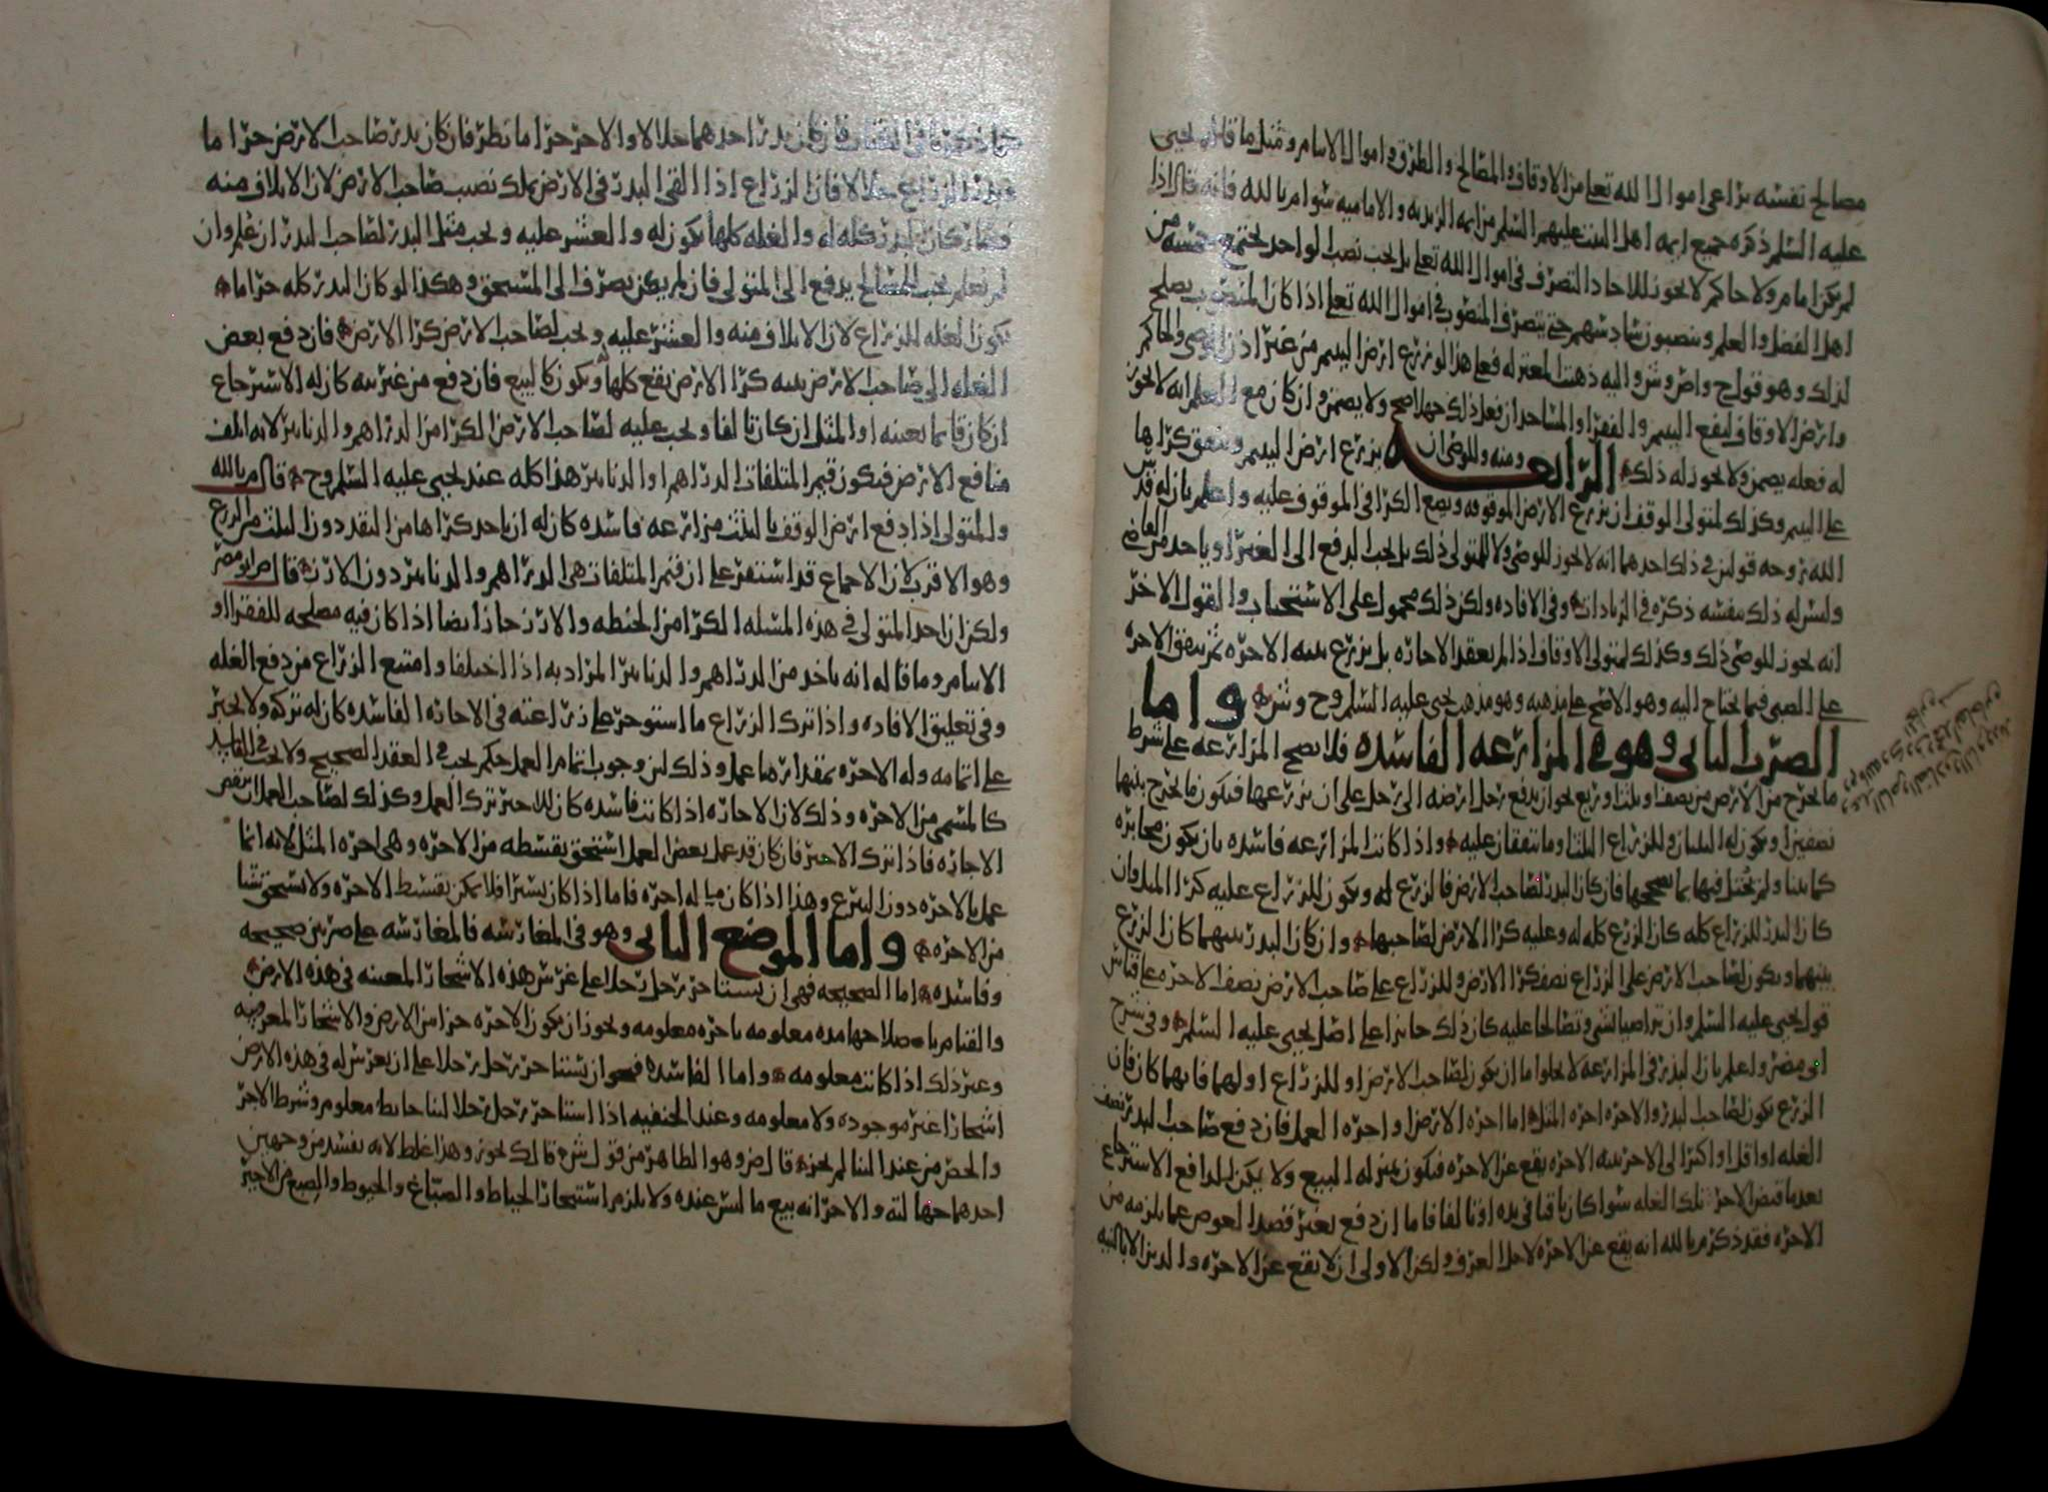 مصالح نفسه يراعى اموال الله تعلى من الاوقاف والمصالح والطرق واموال الايتام ومثل ما قاله يحيى
عليه السلم ذكره جميع ايمه اهل البيت عليهم السلم من ايمه الزيديه والاماميه سوا م بالله فانه قال اذا
لم يكن امام ولا حاكم لا يجوز للاحاد التصرف فى اموال الله تعلى بل يجب نصب لواحد يجتمع خمسه من
اهل الفضل والعلم وينصبون سادسهم حتى يتصرف المنصوب فى اموال الله تعلى اذا كان المنصوب يصلح
لذلك وهو قول ح واص وش واليه ذهبت المعتزله فعلى هذا لو زرع ارض اليتيم من غير اذن الوصى والحاكم
وارض الاوقاف لينفع اليتيم والفقرا والمساجد ان فعل ذلك جهلا صح ولا يضمن وان كان مع العلم انه لا يجوز
له فعله يضمن ولا يجوز له ذلك الرابعه ومنه وللوصى ان يزرع ارض اليتيم وينفق كراها
على اليتيم وكذلك لمتولى الوقف ان يزرع الارض الموقوفه ويضع الكرا فى الموقوف عليه واعلم بان له قدس
الله روحه قولين فى ذلك احدهما انه لا يجوز للوصى ولا للمتولى ذلك بل يجب الدفع الى الغير او ياخد من القاضى
وليس له ذلك بنفسه ذكره فى الزيادات وفى الافاده ولكن ذلك محمول على الاستحباب والقول الاخر
انه يجوز للوصى ذلك وكذلك لمتولى الاوقاف اذا لم يعقد الاجاره بل يزرع بنيه الاجره ثم ينفق الاجره
على الصبى فيما يحتاج اليه وهو الاصح على مذهبه وهو مذهب يحيى عليه السلم وح وش واما
الضرب الثانى وهو فى المزارعه الفاسده فلا تصح المزارعه على شرط
ما يخرج من الارض من نصف وثلث وربع نحو ان يدفع رجل ارضه الى رجل على ان يزرعها فيكون ما يخرج بينهما
نصفين او يكون له الثلثان وللزراع الثلث وما يتفقان عليه واذا كانت المزارعه فاسده بان يكون مخابره
كما بينا ولم يحتل فيها بما يصححها فان كان البذر لصاحب الارض فالزرع له ويكون للزراع عليه كرا المثل وان
كان البذر للزراع كله كان الزرع كله له وعليه كرا الارض لصاحبها وان كان البذر بينهما كان الزرع
بينهما ويكون لصاحب الارض على الزراع نصف كرا الارض وللزراع على صاحب الارض نصف الاجره على قياس
قول يحيى عليه السلم وان تراضيا بشى وتصالحا عليه كان ذلك جايزا على اصل يحيى عليه السلم وفى شرح
ابى مضر واعلم بان البذر فى المزارعه لا يخلوا اما ان يكون لصاحب الارض او للزراع او لهما فايهما كان فان
الزرع يكون لصاحب البذر والاجره اجره المثل اما اجره الارض او اجره العمل فان دفع صاحب البذر نصف
الغله او اقل او اكثر الى الاخر بنيه الاجره يقع عن الاجره فيكون بمنزله المبيع ولا يمكن الدافع الاسترجاع
بعد ما قبض الاخر تلك الغله سوا كان باقيا فى يده او تالفا فاما ان دفع بغير قصد العوض عما يلزمه من
الاجره فقد ذكر م بالله انه يقع عن الاجره لاجل العرف ولكن الاولى ان لا يقع عن الاجره والدين الا بالنيه
فان كان بذر احدهما حلالا والاخر حراما نظر فان كان بذر صاحب الارض حراما
وبذر الزراع حلالا فان الزراع اذا القى البذر فى الارض يملك نصيب صاحب الارض لان الاتلاف منه
وكان البذر كله له والغله كلها يكون له والعشر عليه ويجب مثل البذر لصاحب البذر ان علم وان
لم يعلم يجب للمصالح يدفع الى المتولى فان لم يكن يصرف الى المستحق وهكذا لو كان البذر كله حراما
تكون الغله للزراع لان الاتلاف منه والعشر عليه ويجب لصاحب الارض كرا الارض فان دفع بعض
الغله الى صاحب الارض بنيه كرا الارض يقع كلها ويكون كالبيع فان دفع من غير نيه كان له الاسترجاع
ان كان قايما بعينه او المثل ان كان تالفا ويجب عليه لصاحب الارض الكرا من الدراهم والدنانير لانه اتلف
منافع الارض فيكون قيم المتلفات الدراهم او الدنانير هذا كله عند يحيى عليه السلم وح قال م بالله
والمتولى اذا دفع ارض الوقف بالثلث مزارعه فاسده كان له ان ياخد كراها من النقد دون الثلث من الزرع
وهو الاقرب لان الاجماع قد استقر على ان قيم المتلفات هى الدراهم والدنانير دون الارز قال ص ابو مضر
ولكن ان اخد المتولى فى هذه المسله الكرا من الحنطه والارز جاز ايضا اذا كان فيه مصلحه للفقرا او
الايتام وما قاله انه ياخد من الدراهم والدنانير المراد به اذا اختلفا وامتنع الزراع من دفع الغله
وفى تعليق الافاده واذا ترك الزراع ما استوجر على زراعته فى الاجاره الفاسده كان له تركه ولا يجبر
على اتمامه وله الاجره بمقدار ما عمل وذلك لان وجوب اتمام العمل حكم يجب فى العقد الصحيح ولا يجب فى الفاسد
كالمسمى من الاجره وذلك لان الاجاره اذا كانت فاسده كان للاجير ترك العمل وكذلك لصاحب العمل ان ينقض
الاجاره فاذا ترك الاجير فان كان قد عمل بعض العمل استحق بقسطه من الاجره وهى اجره المثل لانه انما
عمل بالاجره دون التبرع وهذا اذا كان مما له اجره فاما اذا كان يسيرا فلا يمكن بقسط الاجره ولا يستحق شيا
من الاجره واما الموضع الثانى وهو فى المغارسه فالمغارسه على ضربين صحيحه
وفاسده اما الصحيحه فهى ان يستاجر رجل رجلا على غرس هذه الاشجار المعينه فى هذه الارض
والقيام باصلاحها مده معلومه باجره معلومه ويجوز ان يكون الاجره جزا من الارض والاشجار المعروفه
وغير ذلك اذا كانت معلومه واما الفاسده فهو ان يستاجر رجل رجلا على ان يغرس له فى هذه الارض
اشجارا غير موجوده ولا معلومه وعند الحنفيه اذا استاجر رجل رجلا لبنا حايط معلوم وشرط الاجر
والجص من عند البنا لم يجز قال ض وهو الظاهر من قول ش قال ك يجوز وهذا غلط لانه يفسد من وجهين
احدهما جهالته والاخر انه بيع ما ليس عنده ولا يلزم استيجار الخياط والصباغ والخيوط والصبغ من الاجير